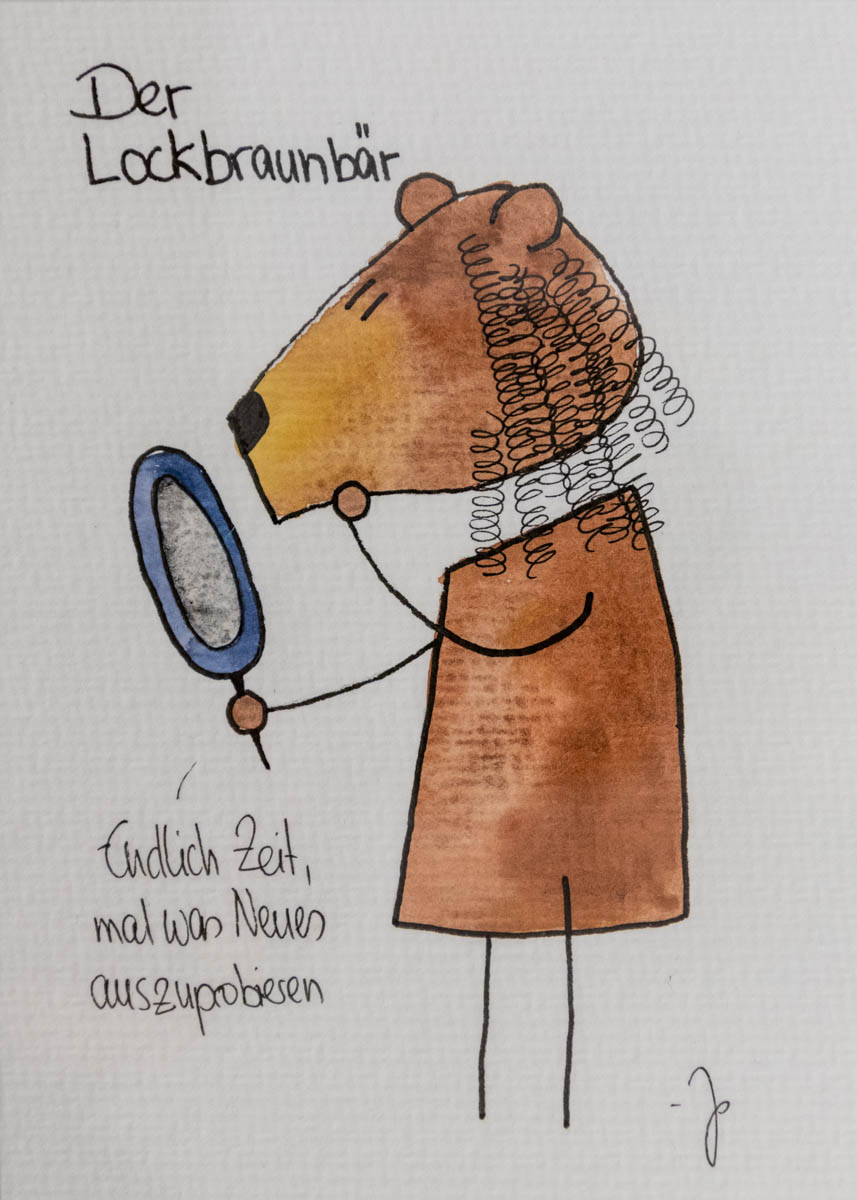 Der
Lockbraunbär
Endlich Zeit,
mal was Neues
auszuprobieren
- Jo